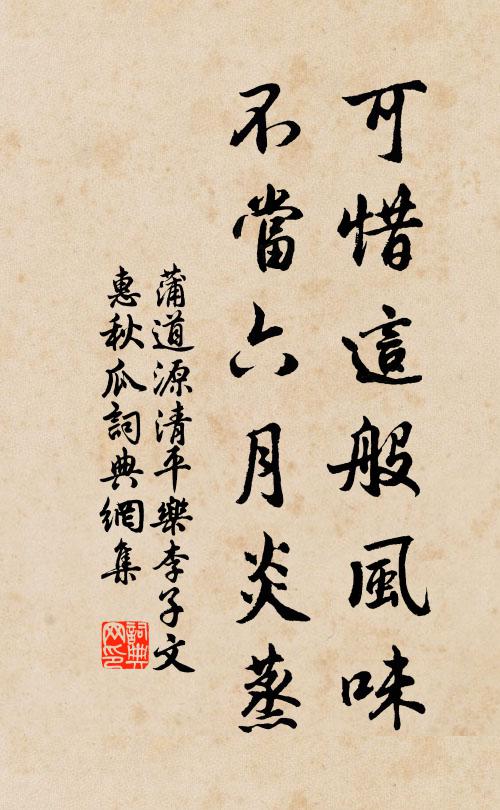 可惜這般風味
不當六月炎蒸
蒲道源清平樂李子文
惠秋瓜詞典網集
詞典網印